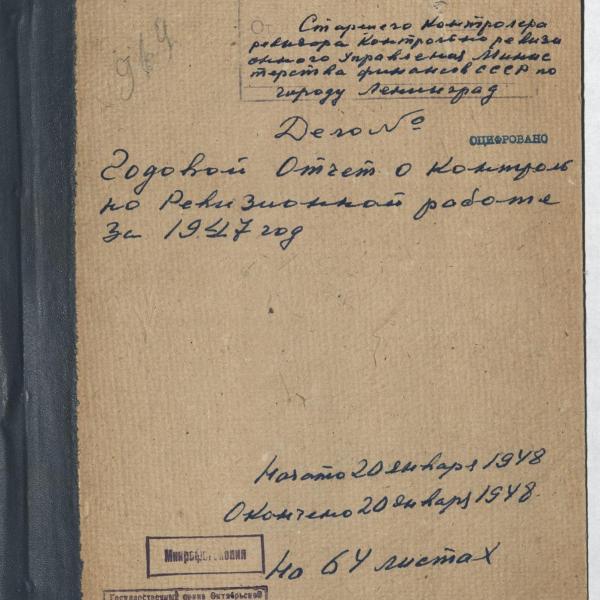 Старшего Контролера
ревизора Контрольно ревизи
онного Управления Минис
терства финансов СССР по
городу Ленинград
Дело №
ОЦИФРОВАНО
Годовой Отчет о Контроль
но Ревизионной работе
за 1947 год
Начато 20 января 1948
Окончено 20 января 1948.
На 64 листах
Государственный архив Октябрьской